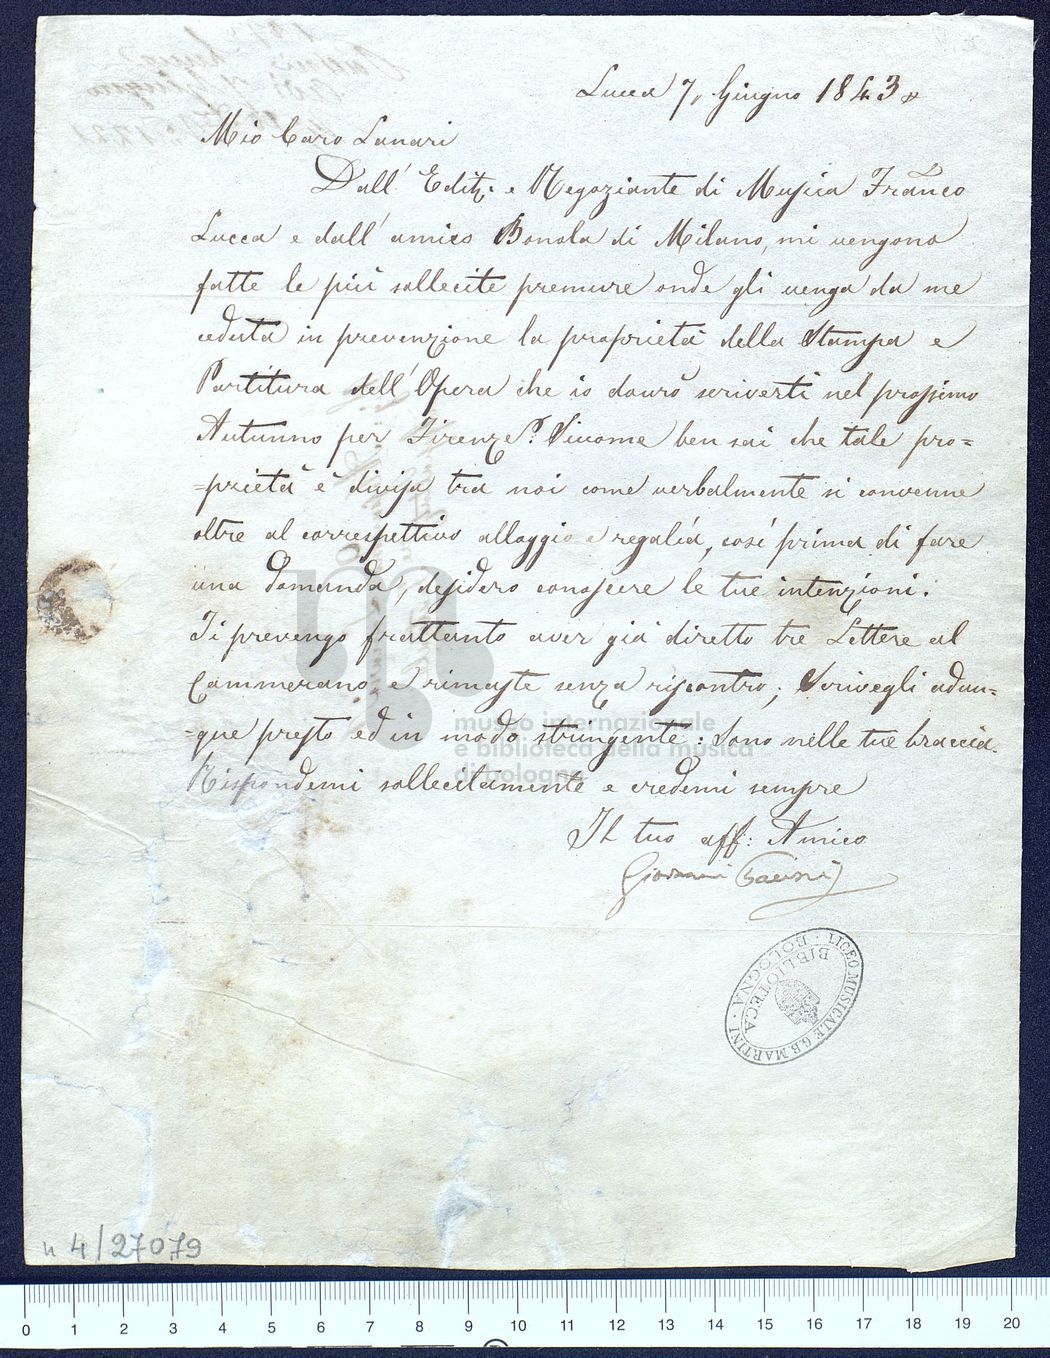 Lucca 7, Giugno 1843
Mio Caro Lanari
Dall' Edit.e e Negoziante di Musica Franco
Lucca e dall' amico Bonola di Milano, mi vengono
fatte le più sollecite premure onde gli venga da me
ceduta in prevenzione la proprietà della Stampa e
Partitura dell' Opera che io dovrò scriverti nel prossimo
Autunno per Firenze. Siccome ben sai che tale pro=
=prietà è divisa tra noi come verbalmente si convenne
oltre al correspettivo alloggio e regalìa, così prima di fare
una domanda, desidero conoscere le tue intenzioni.
Ti prevengo frattanto aver già diretto tre Lettere al
Cammerano e rimaste senza riscontro; Scrivegli adun=
=que presto ed in modo stringente: Sono nelle tue braccia.
Rispondemi sollecitamente e credemi sempre
Il tuo aff: Amico
Giovanni Pacini
LICEO MUSICALE G.B. MARTINI · BOLOGNA ·
BIBLIOTECA
museo internazionale
e biblioteca della musica
di bologna
n 4/27079
0 1 2 3 4 5 6 7 8 9 10 11 12 13 14 15 16 17 18 19 20